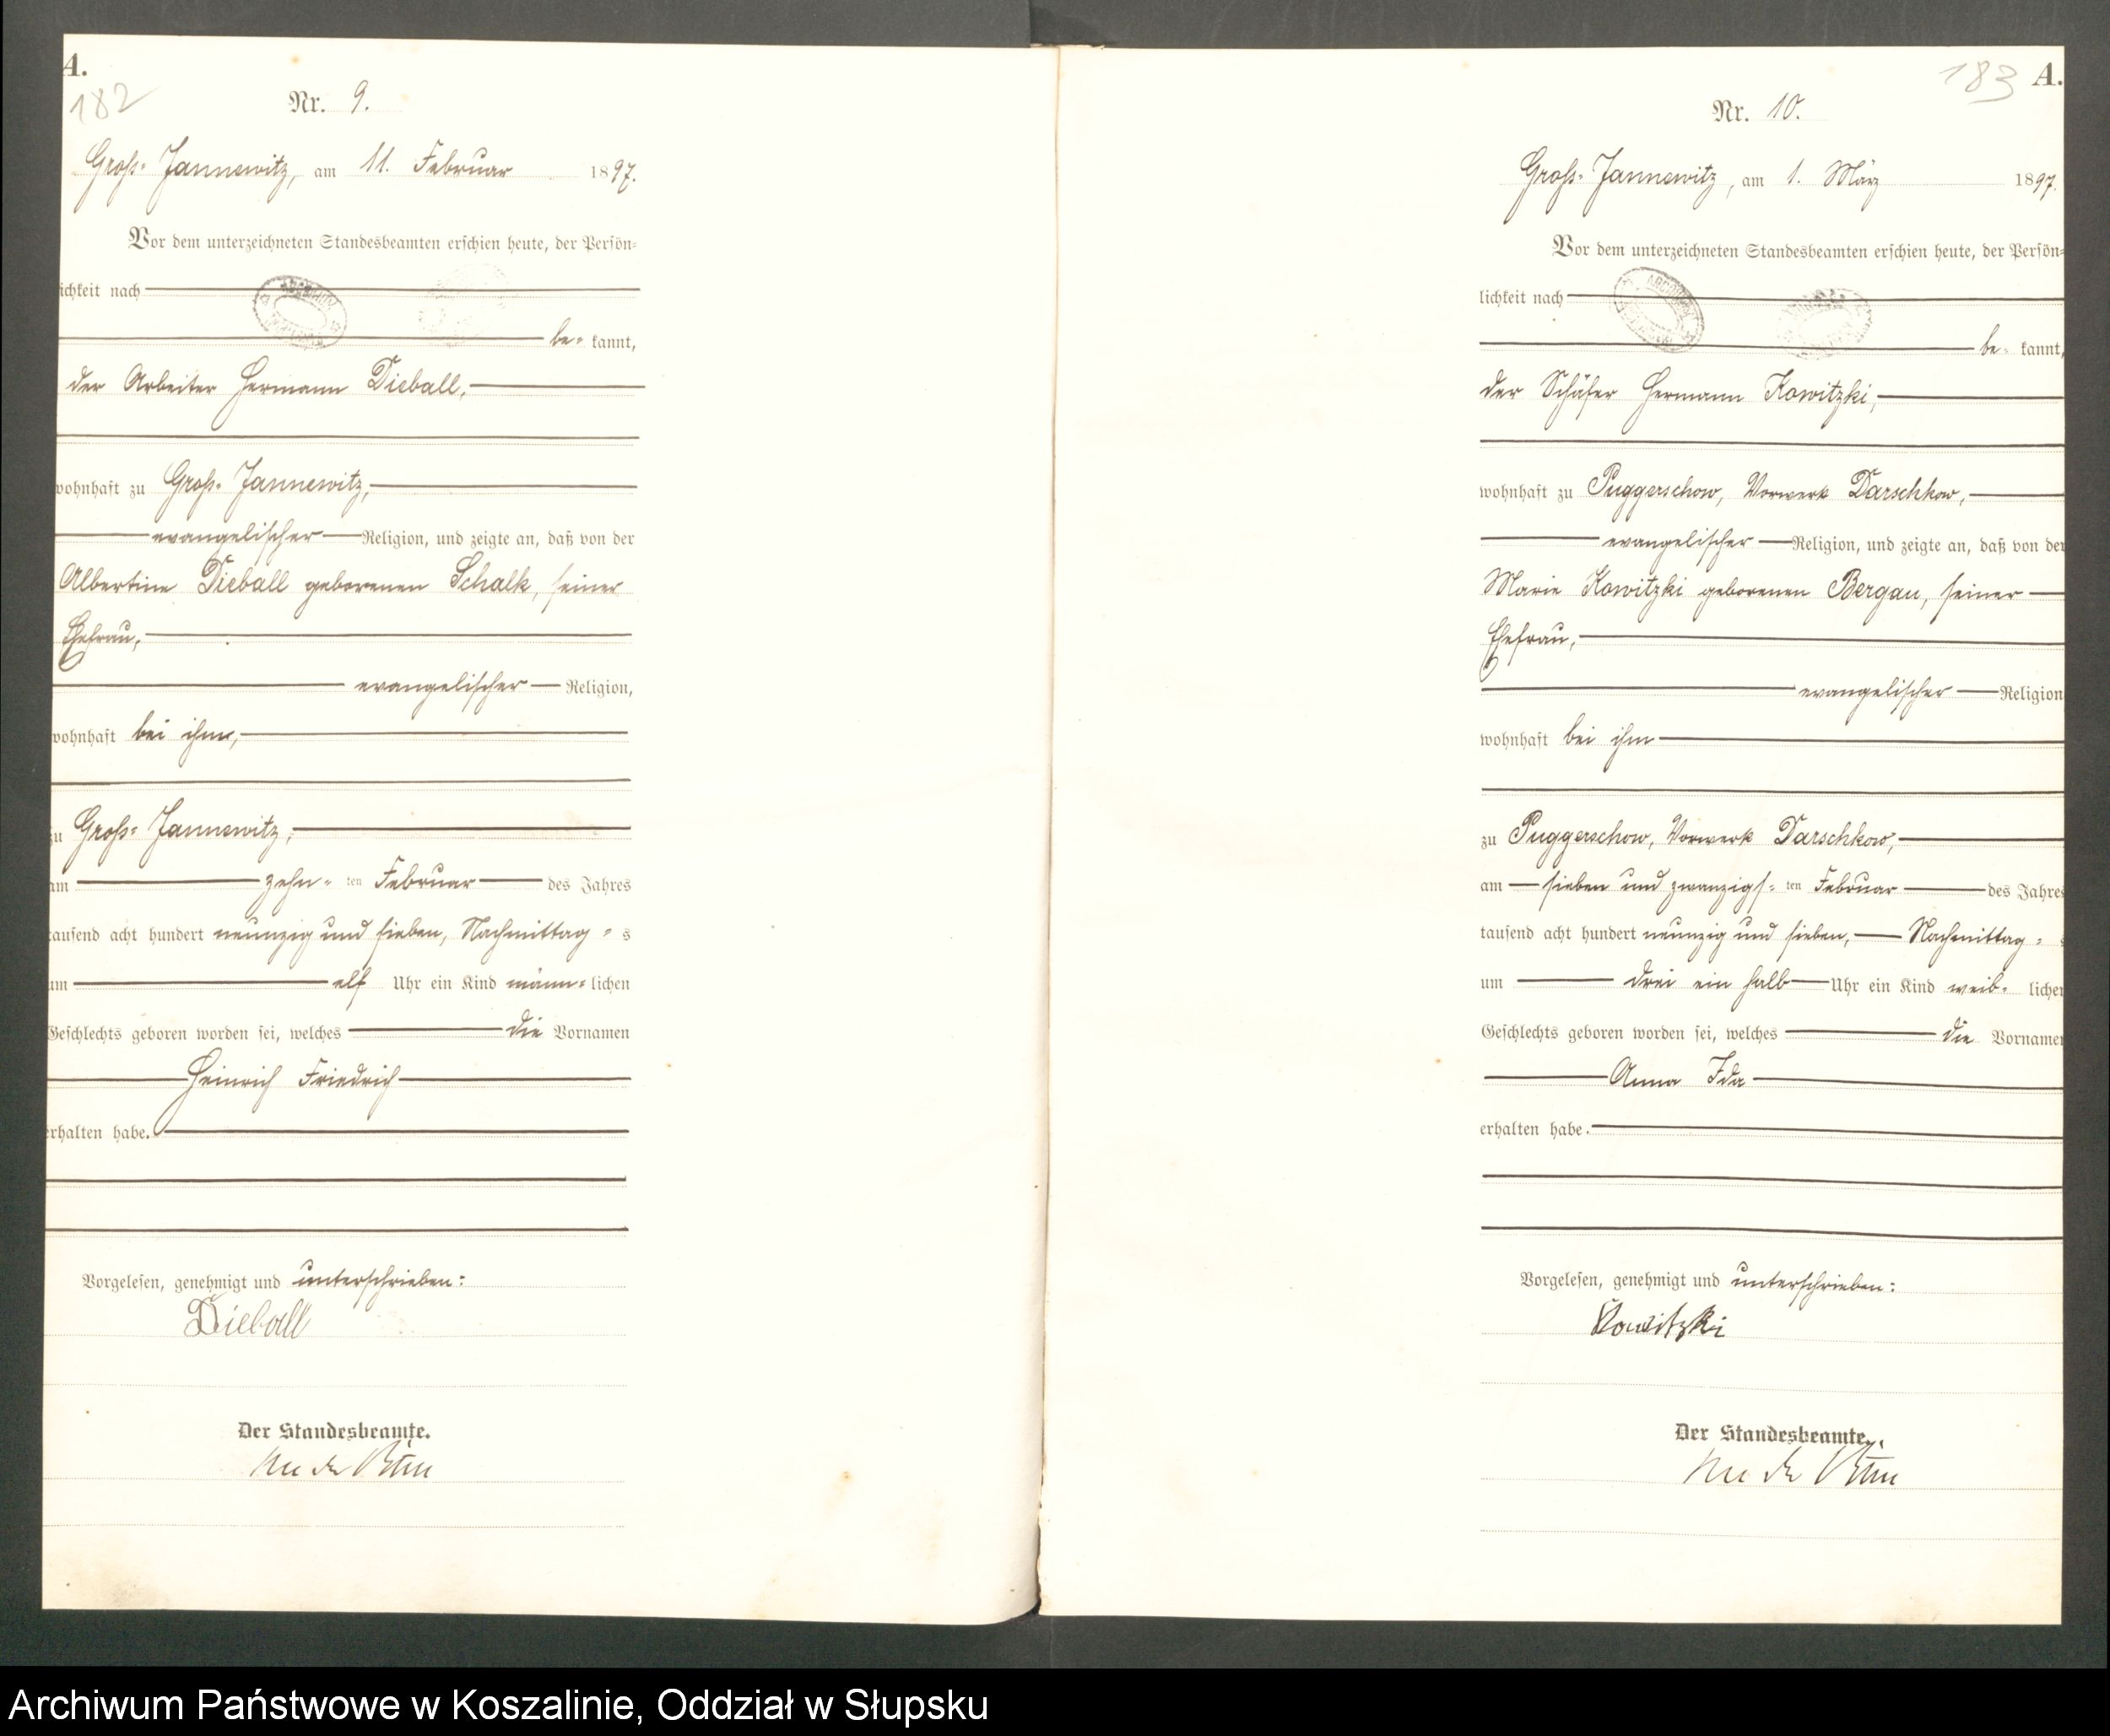 A.
182
Nr. 9.
Groß-Jannewitz, am 11. Februar 1897.
Vor dem unterzeichneten Standesbeamten erschien heute, der Persön-
ichkeit nach
be- kannt,
der Arbeiter Hermann Dieball,
wohnhaft zu Groß-Jannewitz,
evangelischer Religion, und zeigte an, daß von der
Albertine Dieball geborenen Schalk, seiner
Ehefrau,
evangelischer Religion,
wohnhaft bei ihm,
zu Groß-Jannewitz,
am zehn-ten Februar des Jahres
tausend acht hundert neunzig und sieben, Nachmittag-s
um elf Uhr ein Kind männ-lichen
Geschlechts geboren worden sei, welches die Vornamen
Heinrich Friedrich
erhalten habe.
Vorgelesen, genehmigt und unterschrieben:
Dieball
Der Standesbeamte.
183 A.
Nr. 10.
Groß-Jannewitz, am 1. März 1897.
Vor dem unterzeichneten Standesbeamten erschien heute, der Persön-
lichkeit nach
be- kannt,
der Schäfer Hermann Kowitzki,
wohnhaft zu Puggerschow, Vorwerk Darschkow,
evangelischer Religion, und zeigte an, daß von der
Marie Kowitzki geborenen Bergau, seiner
Ehefrau,
evangelischer Religion
wohnhaft bei ihm
zu Puggerschow, Vorwerk Darschkow,
am sieben und zwanzigs-ten Februar des Jahres
tausend acht hundert neunzig und sieben, Nachmittag-
um drei ein halb Uhr ein Kind weib- lichen
Geschlechts geboren worden sei, welches die Vornamen
Anna Ida
erhalten habe.
Vorgelesen, genehmigt und unterschrieben:
Kowitzki
Der Standesbeamte.
Archiwum Państwowe w Koszalinie, Oddział w Słupsku